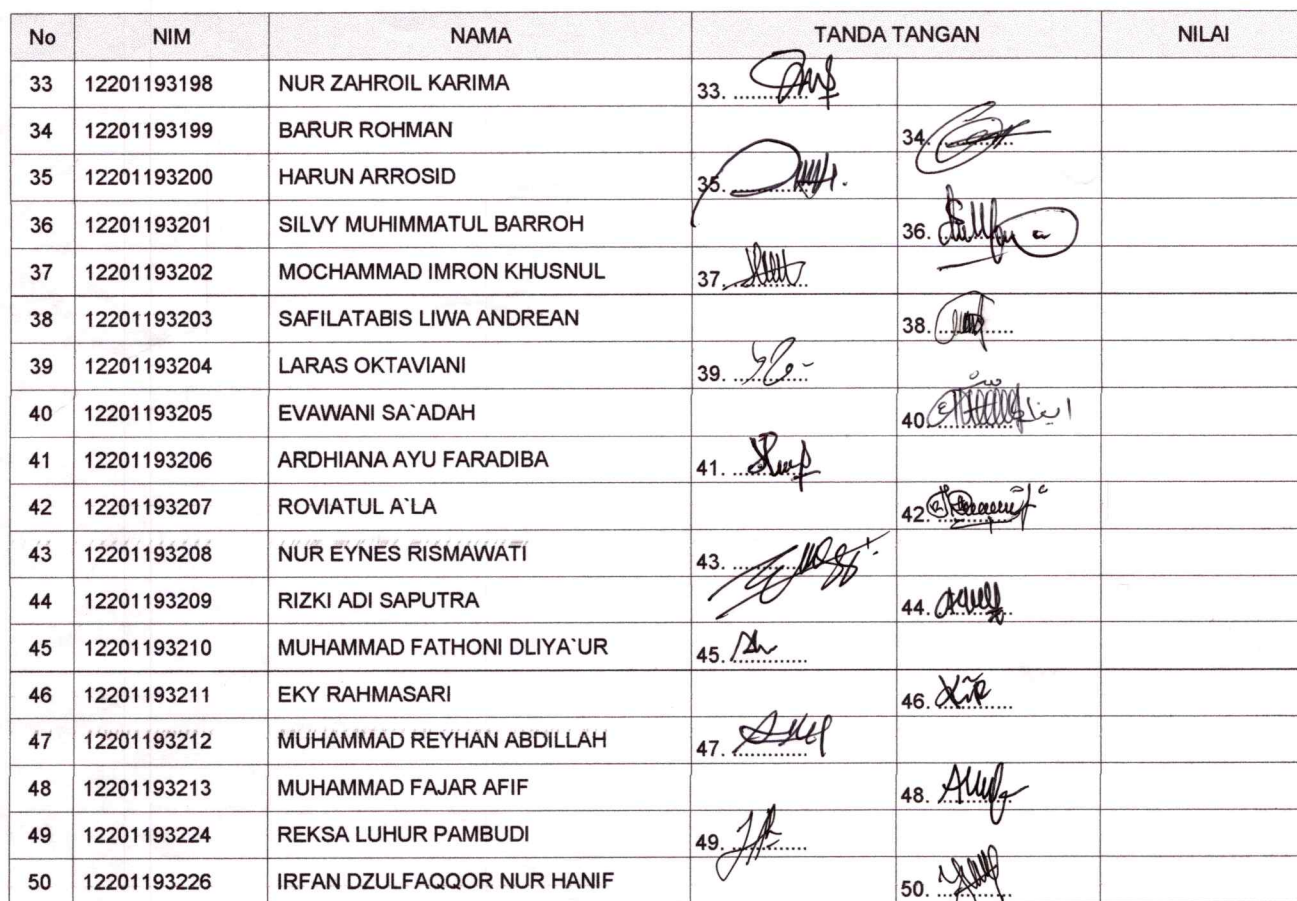 No NIM NAMA TANDA TANGAN NILAI
33 12201193198 NUR ZAHROIL KARIMA 33. ..............
34 12201193199 BARUR ROHMAN 34. ..............
35 12201193200 HARUN ARROSID 35. ..............
36 12201193201 SILVY MUHIMMATUL BARROH 36. ..............
37 12201193202 MOCHAMMAD IMRON KHUSNUL 37. ..............
38 12201193203 SAFILATABIS LIWA ANDREAN 38. ..............
39 12201193204 LARAS OKTAVIANI 39. ..............
40 12201193205 EVAWANI SA`ADAH 40. ..............
41 12201193206 ARDHIANA AYU FARADIBA 41. ..............
42 12201193207 ROVIATUL A`LA 42. ..............
43 12201193208 NUR EYNES RISMAWATI 43. ..............
44 12201193209 RIZKI ADI SAPUTRA 44. ..............
45 12201193210 MUHAMMAD FATHONI DLIYA`UR 45. ..............
46 12201193211 EKY RAHMASARI 46. ..............
47 12201193212 MUHAMMAD REYHAN ABDILLAH 47. ..............
48 12201193213 MUHAMMAD FAJAR AFIF 48. ..............
49 12201193224 REKSA LUHUR PAMBUDI 49. ..............
50 12201193226 IRFAN DZULFAQQOR NUR HANIF 50. ..............